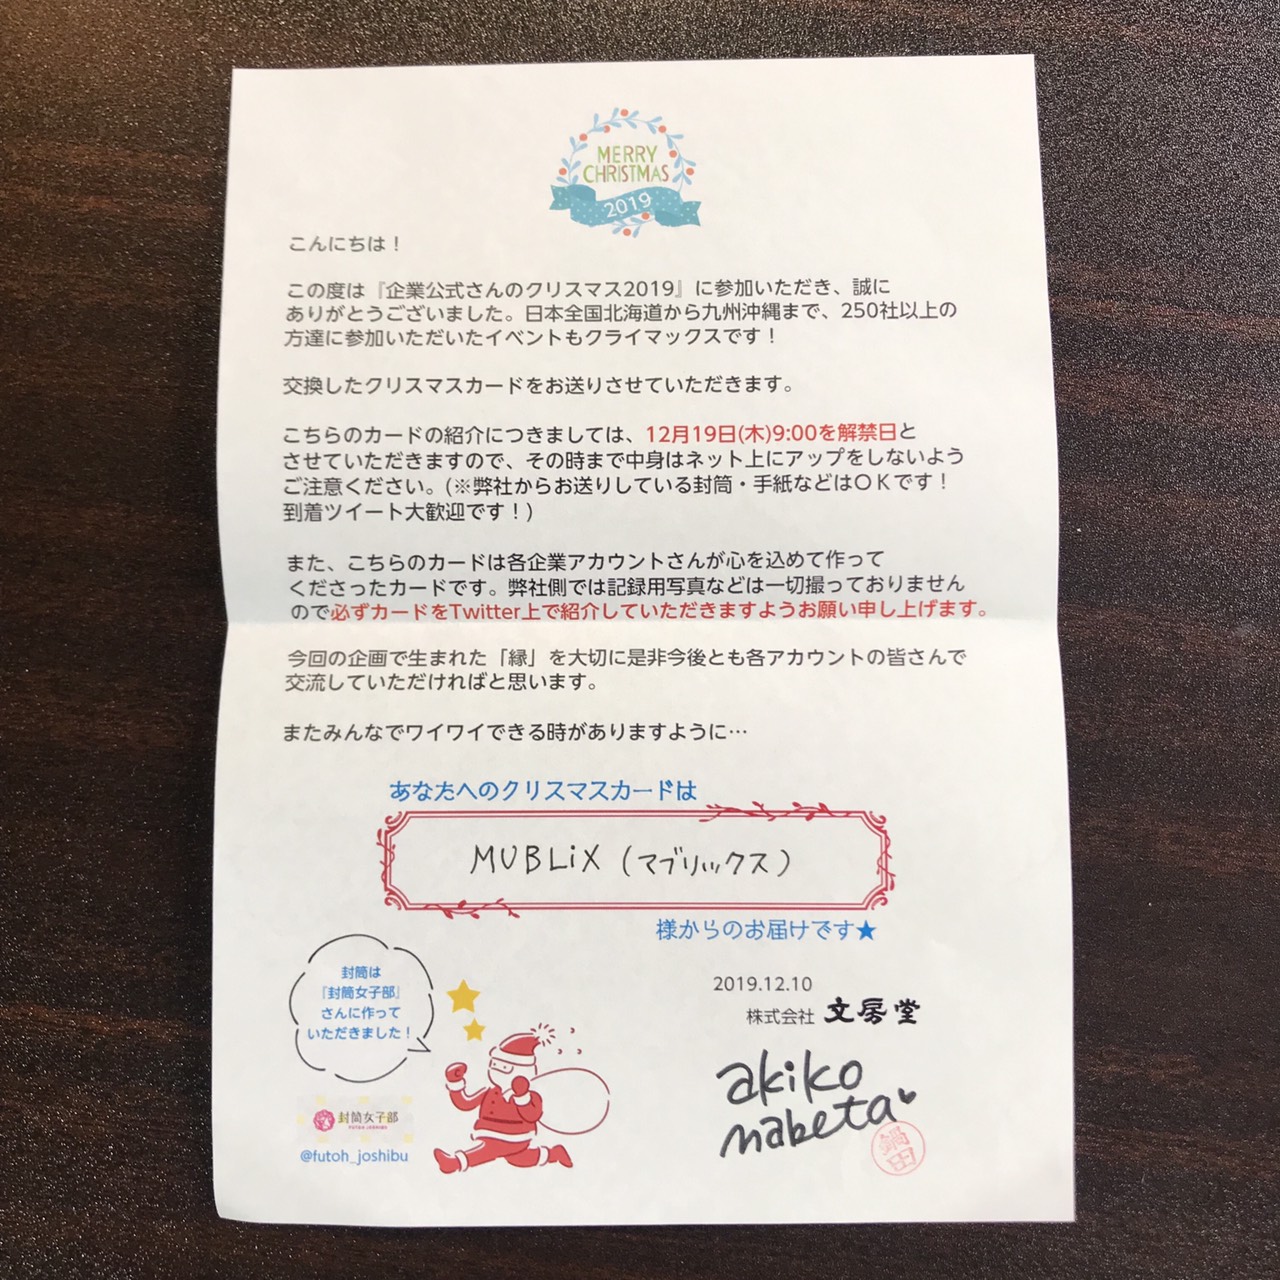 MERRY
CHRISTMAS
2019
こんにちは！
この度は『企業公式さんのクリスマス2019』に参加いただき、誠に
ありがとうございました。日本全国北海道から九州沖縄まで、250社以上の
方達に参加いただいたイベントもクライマックスです！
交換したクリスマスカードをお送りさせていただきます。
こちらのカードの紹介につきましては、12月19日(木)9:00を解禁日と
させていただきますので、その時まで中身はネット上にアップをしないよう
ご注意ください。(※弊社からお送りしている封筒・手紙などはＯＫです！
到着ツイート大歓迎です！)
また、こちらのカードは各企業アカウントさんが心を込めて作って
くださったカードです。弊社側では記録用写真などは一切撮っておりません
ので必ずカードをTwitter上で紹介していただきますようお願い申し上げます。
今回の企画で生まれた「縁」を大切に是非今後とも各アカウントの皆さんで
交流していただければと思います。
またみんなでワイワイできる時がありますように…
あなたへのクリスマスカードは
MUBLiX (マブリックス)
様からのお届けです★
封筒は
『封筒女子部』
さんに作って
いただきました！
封筒女子部
FUTOH JOSHIBU
@futoh_joshibu
2019.12.10
株式会社 文房堂
akiko
nabeta
鍋田